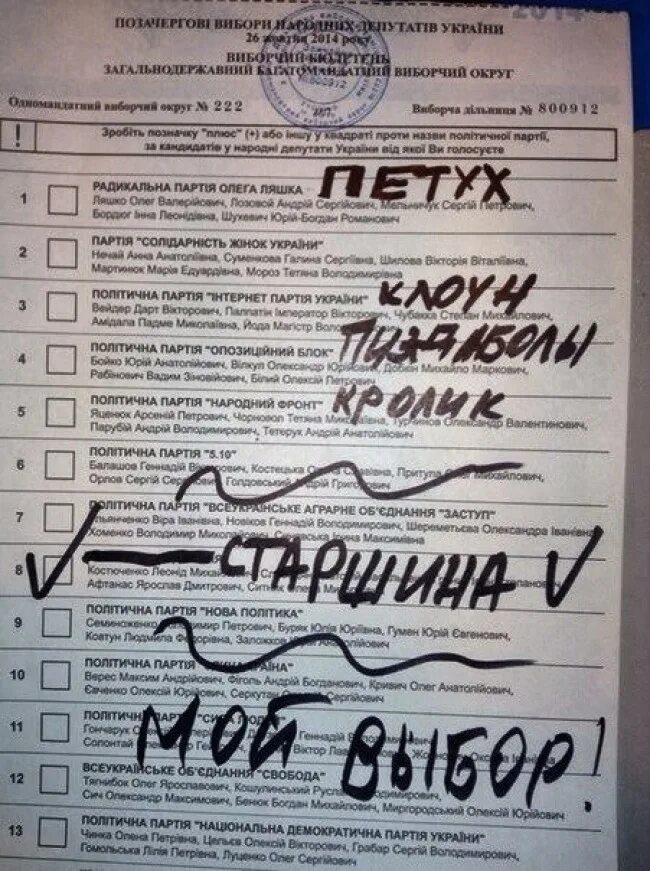 2014
ПОЗАЧЕРГОВІ ВИБОРИ НАРОДНИХ ДЕПУТАТІВ УКРАЇНИ
26 жовтня 2014 року
ВИБОРЧИЙ БЮЛЕТЕНЬ
ЗАГАЛЬНОДЕРЖАВНИЙ БАГАТОМАНДАТНИЙ ВИБОРЧИЙ ОКРУГ
Одномандатний виборчий округ № 222 Виборча дільниця № 800912
! Зробіть позначку "плюс" (+) або іншу у квадраті проти назви політичної партії,
за кандидатів у народні депутати України від якої Ви голосуєте
1 РАДИКАЛЬНА ПАРТІЯ ОЛЕГА ЛЯШКА ПЕТУХ
Ляшко Олег Валерійович, Лозовой Андрій Сергійович, Мельничук Сергій Петрович,
Бордюг Інна Леонідівна, Шухевич Юрій-Богдан Романович
2 ПАРТІЯ "СОЛІДАРНІСТЬ ЖІНОК УКРАЇНИ"
Нечай Анна Анатоліївна, Суменкова Галина Сергіївна, Шилова Вікторія Віталіївна,
Мартинюк Марія Едуардівна, Мороз Тетяна Володимирівна
3 ПОЛІТИЧНА ПАРТІЯ "ІНТЕРНЕТ ПАРТІЯ УКРАЇНИ" КЛОУН
Вейдер Дарт Вікторович, Палпатін Імператор Вікторович, Чубакка Степан Михайлович,
Амідала Падме Миколаївна, Йода Магістр
4 ПОЛІТИЧНА ПАРТІЯ "ОПОЗИЦІЙНИЙ БЛОК" ПИЗДАБОЛЫ
Бойко Юрій Анатолійович, Вілкул Олександр Юрійович, Добкін Михайло Маркович,
Рабінович Вадим Зіновійович, Білий Олексій Петрович
5 ПОЛІТИЧНА ПАРТІЯ "НАРОДНИЙ ФРОНТ" КРОЛИК
Яценюк Арсеній Петрович, Чорновол Тетяна Миколаївна, Турчинов Олександр Валентинович,
Парубій Андрій Володимирович, Тетерук Андрій Анатолійович
6 ПОЛІТИЧНА ПАРТІЯ "5.10"
Балашов Геннадій Вікторович, Костецька Притула Михайлович,
Орлов Сергій Голдовський Андрій
7 ПОЛІТИЧНА ПАРТІЯ "ВСЕУКРАЇНСЬКЕ АГРАРНЕ ОБ'ЄДНАННЯ "ЗАСТУП"
Ульянченко Віра Іванівна, Новіков Геннадій Володимирович, Шереметьєва Олександра Іванівна
Хоменко Володимир Ірина Максимівна
8 СТАРШИНА
Костюченко Леонід
Афтанас Ярослав Дмитрович,
9 ПОЛІТИЧНА ПАРТІЯ "НОВА ПОЛІТИКА"
Семиноженко Володимир Петрович, Буряк Юлія Юріївна, Гумен Юрій Євгенович,
Ковтун Людмила Федорівна, Заложков
10 ПОЛІТИЧНА ПАРТІЯ
Верес Максим Андрійович, Фіголь Андрій Богданович, Кривич Олег Анатолійович,
Євченко Олексій Юрійович, Серкутан Сергійович
11 ПОЛІТИЧНА ПАРТІЯ "СИЛА ЛЮДЕЙ" МОЙ ВЫБОР!
Гончарук Геннадій
Солонтай Віктор
12 ВСЕУКРАЇНСЬКЕ ОБ'ЄДНАННЯ "СВОБОДА"
Тягнибок Олег Ярославович, Кошулинський Руслан
Сич Олександр Максимович, Бенюк Богдан Михайлович, Миргородський Олексій Юрійович
13 ПОЛІТИЧНА ПАРТІЯ "НАЦІОНАЛЬНА ДЕМОКРАТИЧНА ПАРТІЯ УКРАЇНИ"
Чинка Олена Петрівна, Цельєв Олексій Вікторович, Грабар Сергій Володимирович,
Гомольська Лілія Петрівна, Луценко Олег Сергійович